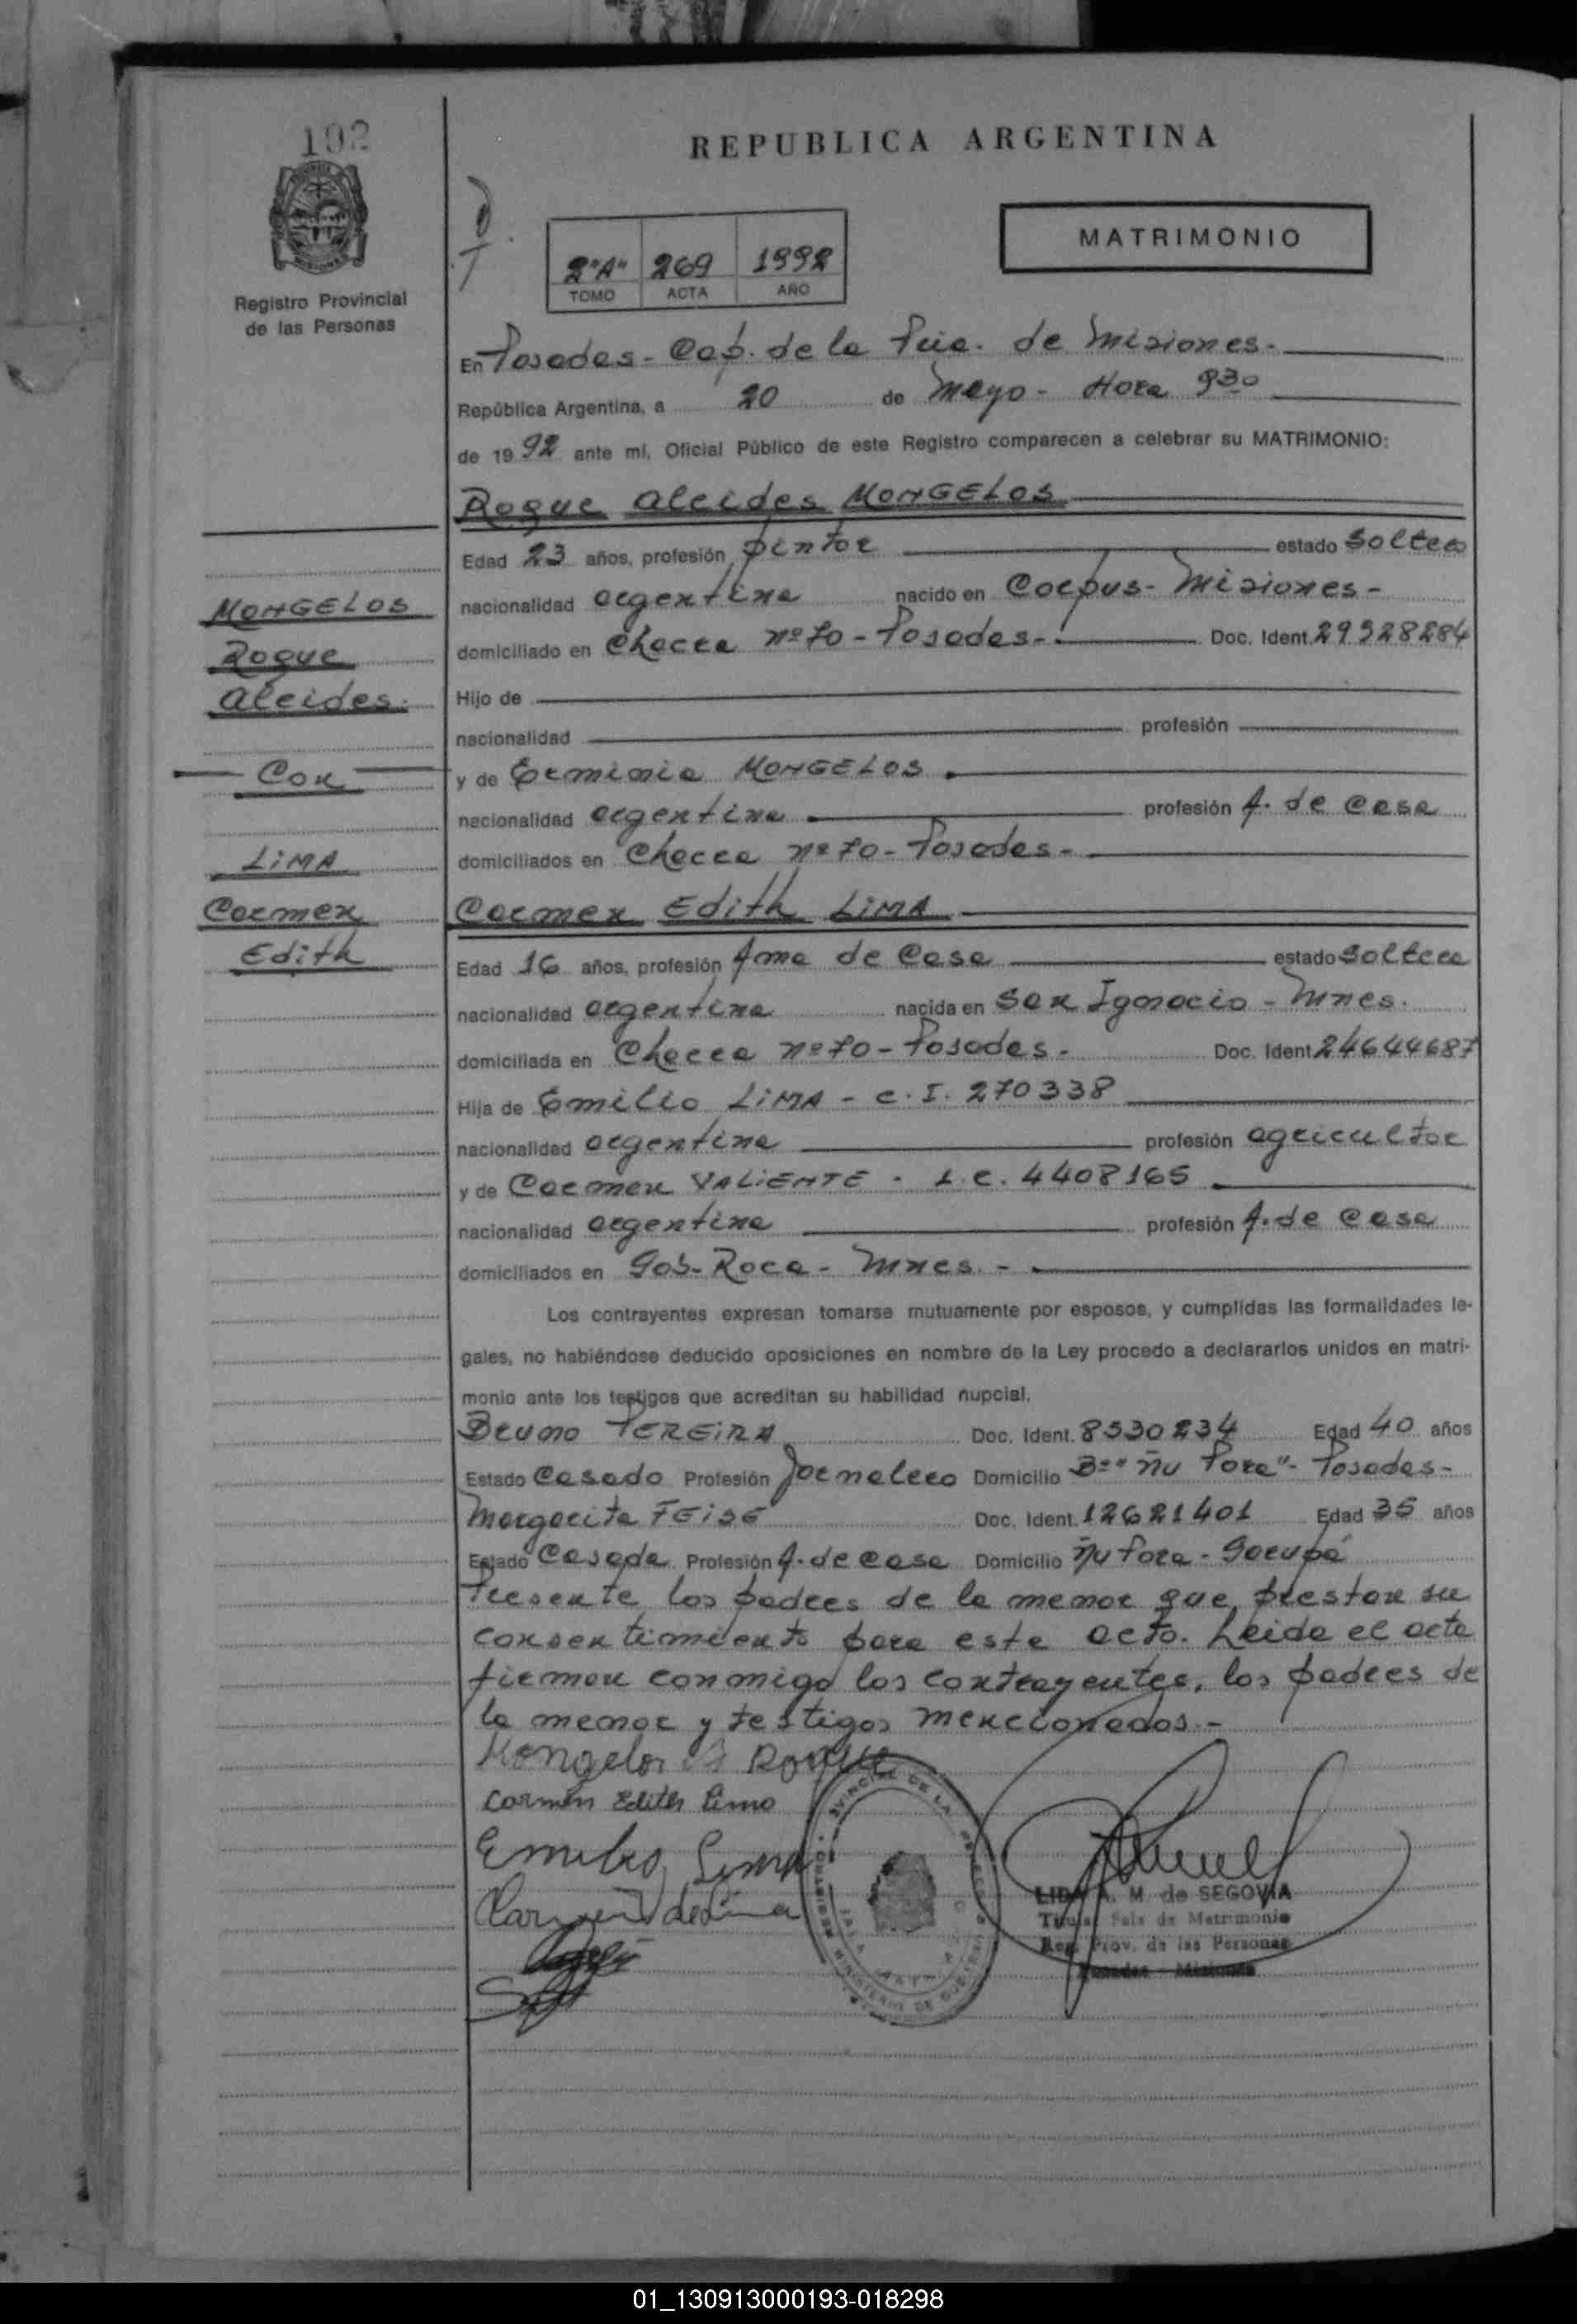 192
REPUBLICA ARGENTINA
MATRIMONIO
Registro Provincial
de las Personas
2º"A" 269 1992
TOMO ACTA AÑO
En Posadas - Cap. de la Pcia. de Misiones.
República Argentina, a 20 de Mayo - Hora 9³⁰
de 1992 ante mí, Oficial Público de este Registro comparecen a celebrar su MATRIMONIO:
Roque Alcides MONGELOS
Edad 23 años, profesión pintor estado soltero
nacionalidad argentina nacido en Corpus - Misiones -
domiciliado en Chacra nº 70 - Posadas - Doc. Ident. 29328284
Hijo de
nacionalidad profesión
y de Erminia MONGELOS
nacionalidad argentina profesión A. de casa
domiciliados en Chacra nº 70 - Posadas -
MONGELOS
Roque
Alcides.
Con
LIMA
Carmen
Edith
Carmen Edith LIMA
Edad 16 años, profesión Ama de Casa estado soltera
nacionalidad argentina nacida en San Ignacio - Mnes.
domiciliada en Chacra nº 70 - Posadas - Doc. Ident 24644687
Hija de Emilio LIMA - C. I. 270338
nacionalidad argentina profesión agricultor
y de Carmen VALIENTE - L.C. 4408165
nacionalidad argentina profesión A. de casa
domiciliados en Gob. Roca - Mnes. -
Los contrayentes expresan tomarse mutuamente por esposos, y cumplidas las formalidades le-
gales, no habiéndose deducido oposiciones en nombre de la Ley procedo a declararlos unidos en matri-
monio ante los testigos que acreditan su habilidad nupcial.
Bruno PEREIRA Doc. Ident. 8530234 Edad 40 años
Estado Casado Profesión Jornalero Domicilio Bº "Ñu Pora" - Posadas -
Margarita FEISE Doc. Ident. 12621401 Edad 35 años
Estado Casada Profesión A. de casa Domicilio Ñu Pora - Garupá
Presente los padres de la menor que prestan su
consentimiento para este acto. Leida el acta
firman conmigo los contrayentes, los padres de
la menor y testigos mencionados. -
Mongelos A Roque
Carmen Edith Lima
Emilio Lima
Carmen V de Lima
LIDIA A. M. de SEGOVIA
Titular Sala de Matrimonio
Reg. Prov. de las Personas
Posadas - Misiones
01_130913000193-018298